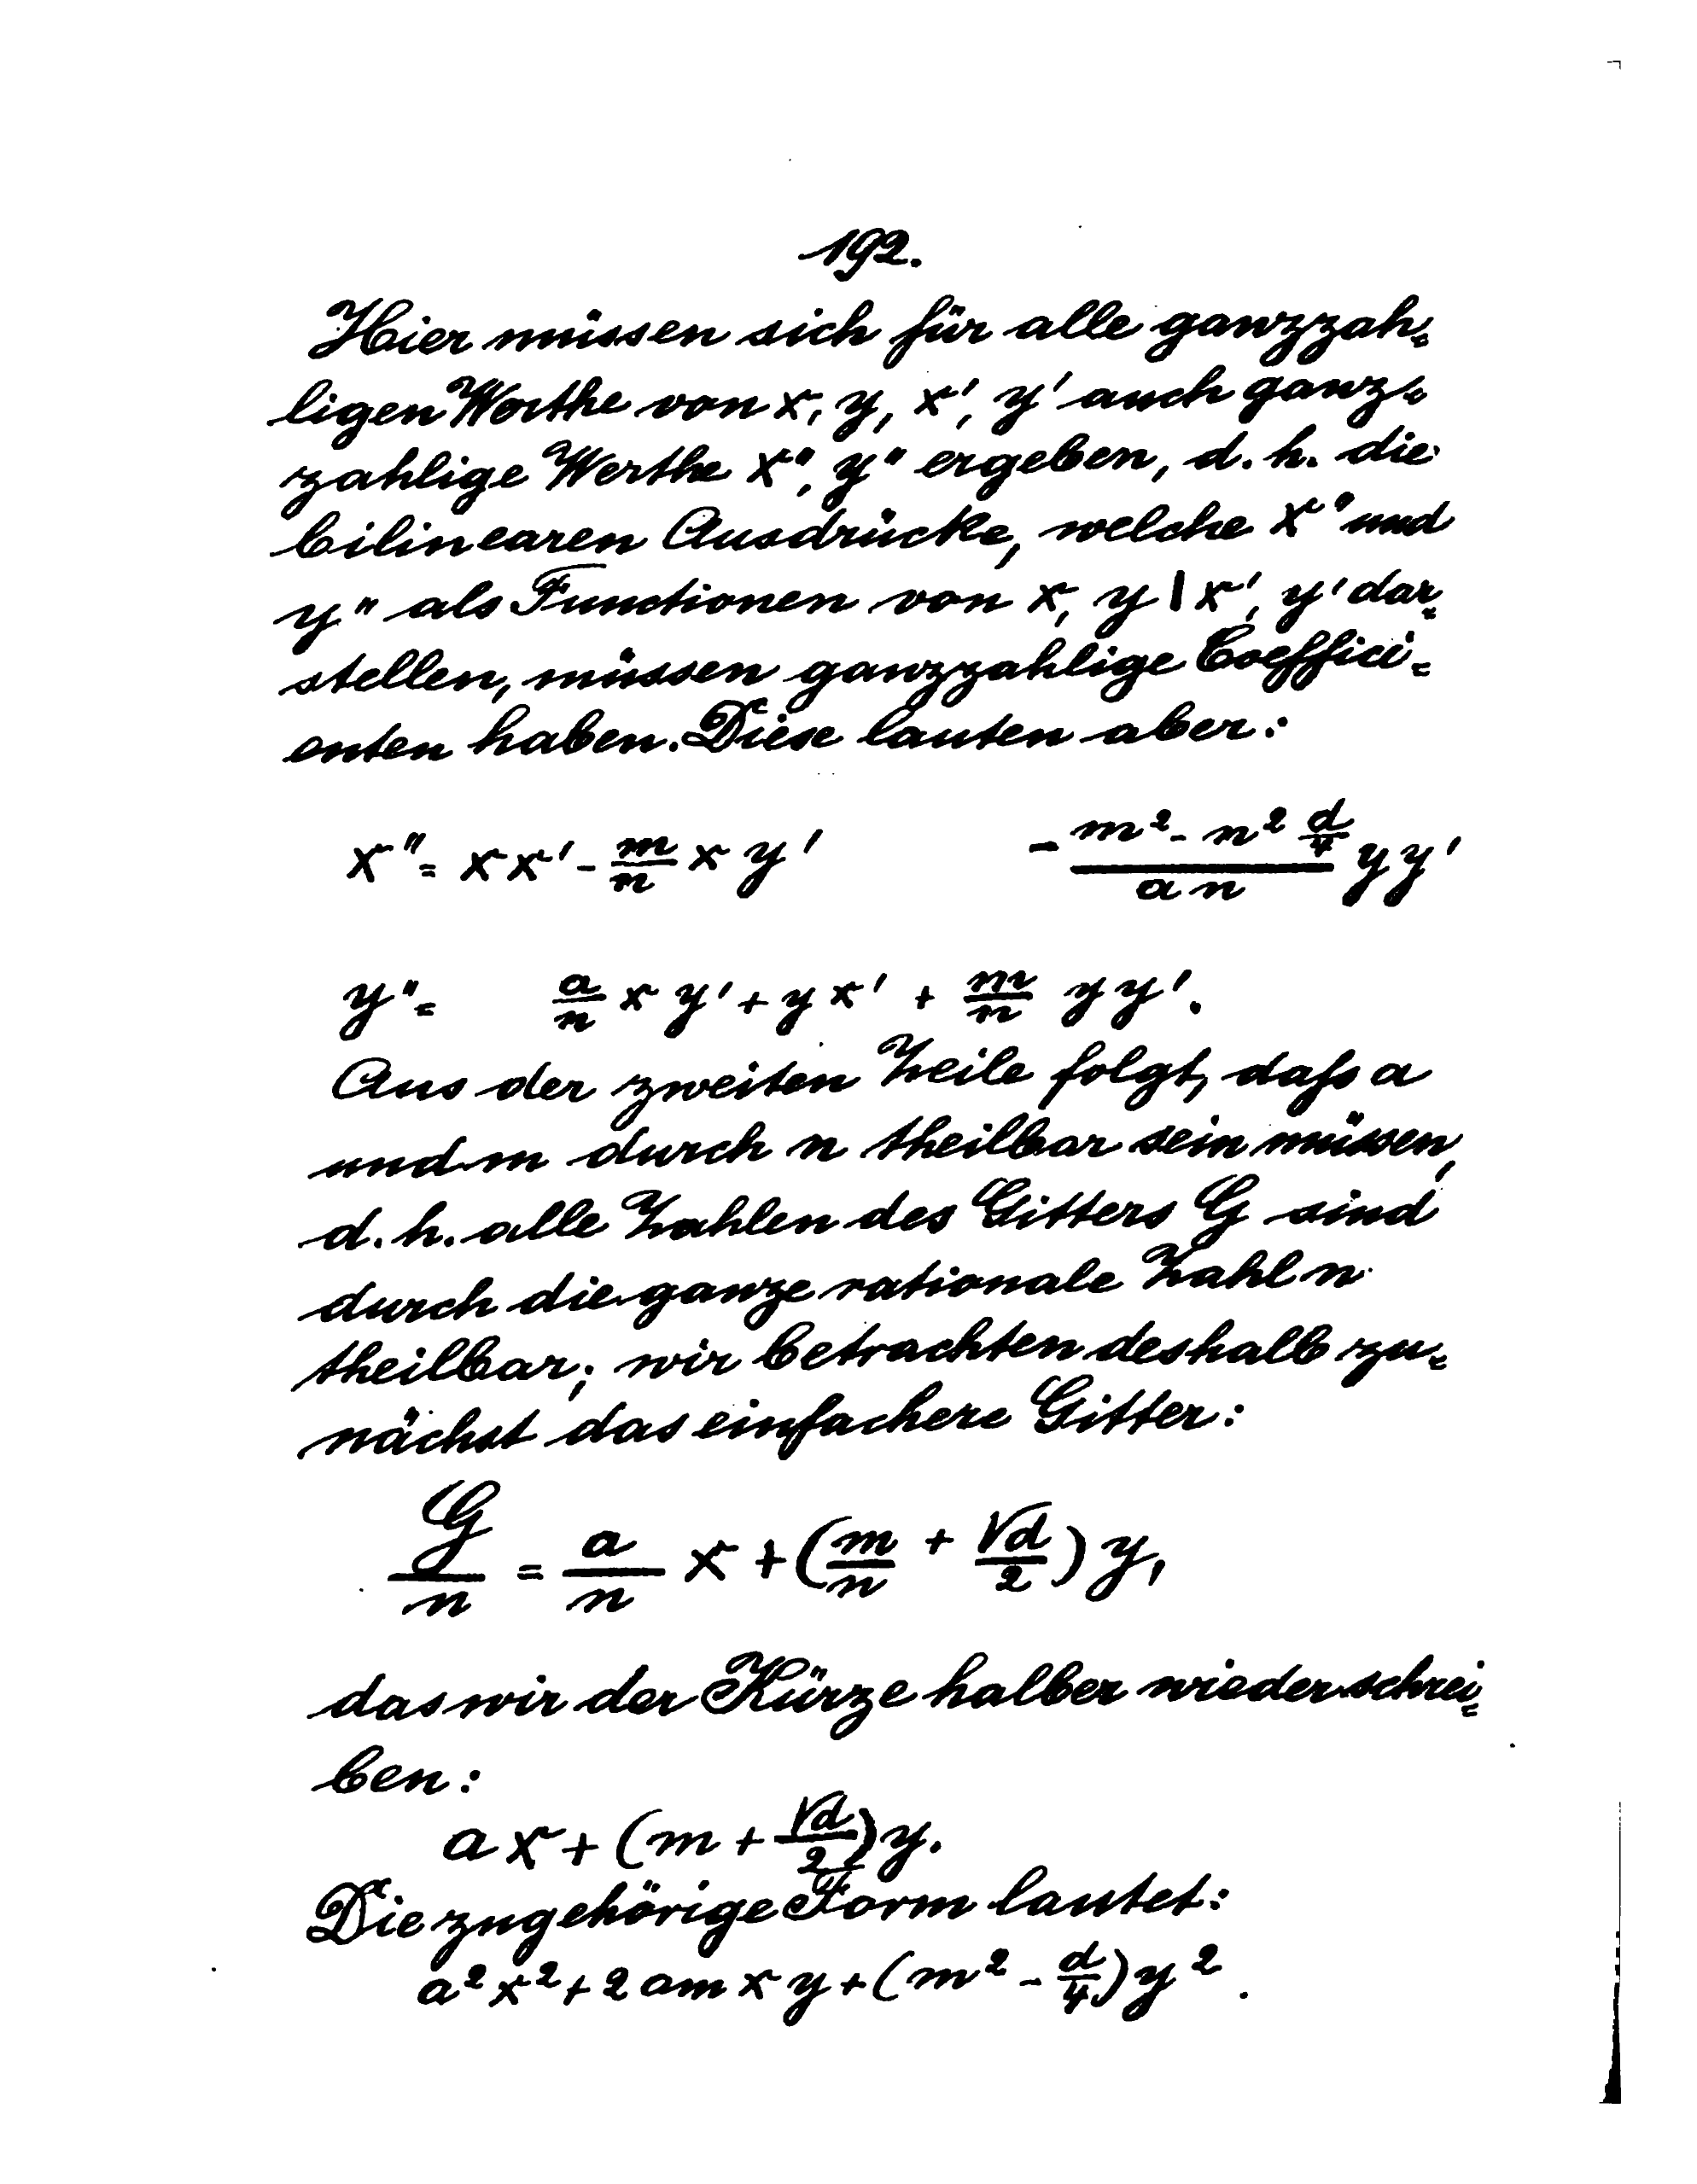 192.
Hier müssen sich für alle ganzzah-
ligen Werthe von x, y, x', y' auch ganz-
zahlige Werthe x", y" ergeben, d. h. die
bilinearen Ausdrücke, welche x" und
y" als Functionen von x, y | x', y' dar-
stellen, müssen ganzzahlige Coeffici-
enten haben. Diese lauten aber:
x" = xx' - m/n xy' - (m² - n² d/4)/(an) yy'
y" = a/n xy' + yx' + m/n yy'.
Aus der zweiten Zeile folgt, daß a
und m durch n theilbar sein müssen,
d. h. alle Zahlen des Gitters G sind
durch die ganze rationale Zahl n
theilbar; wir betrachten deshalb zu-
nächst das einfachere Gitter:
G/n = a/n x + (m/n + √d/2) y,
das wir der Kürze halber wieder schrei-
ben:
ax + (m + √d/2) y.
Die zugehörige Form lautet:
a²x² + 2amxy + (m² - d/4) y².